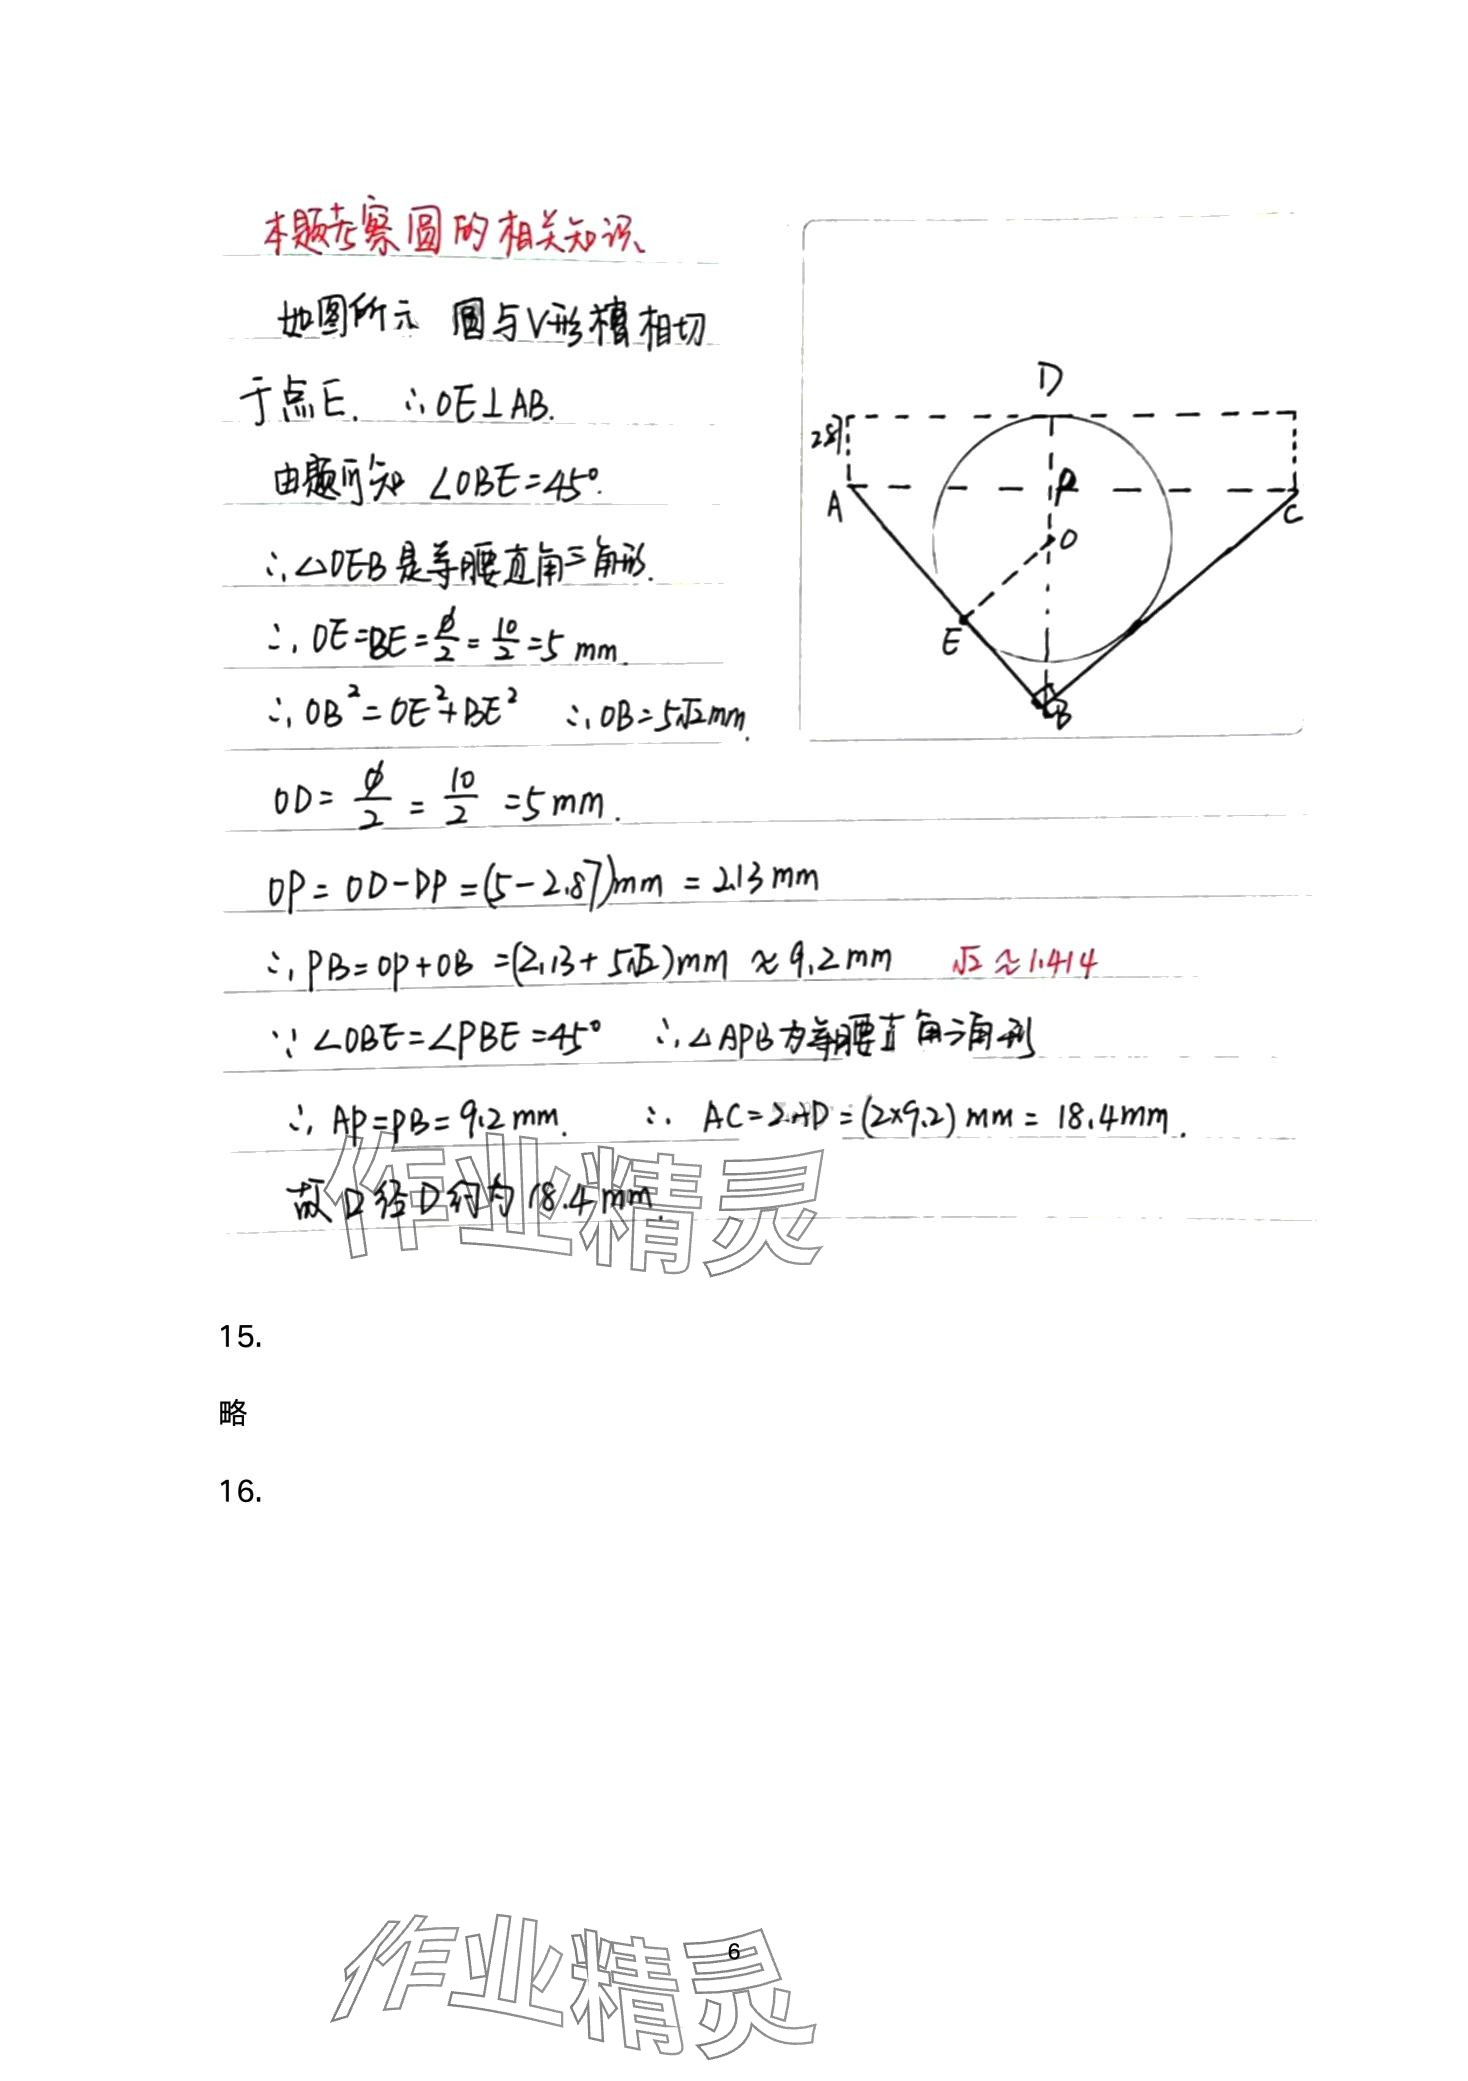 本题考察圆的相关知识、
如图所示 圆与V形槽相切
于点E. ∴OE⊥AB.
由题可知 ∠OBE=45°.
∴△OEB是等腰直角三角形.
∴OE=BE=φ/2=10/2=5 mm.
∴OB²=OE²+BE² ∴OB=5√2mm.
OD=φ/2=10/2=5mm.
OP=OD-DP=(5-2.87)mm=2.13mm
∴PB=OP+OB=(2.13+5√2)mm≈9.2mm √2≈1.414
∵∠OBE=∠PBE=45° ∴△APB为等腰直角三角形
∴AP=PB=9.2mm. ∴AC=2AD=(2×9.2)mm=18.4mm.
故口径D约为18.4mm.
D
2.87
P
A
C
O
E
B
作业精灵
15.
略
16.
6
作业精灵